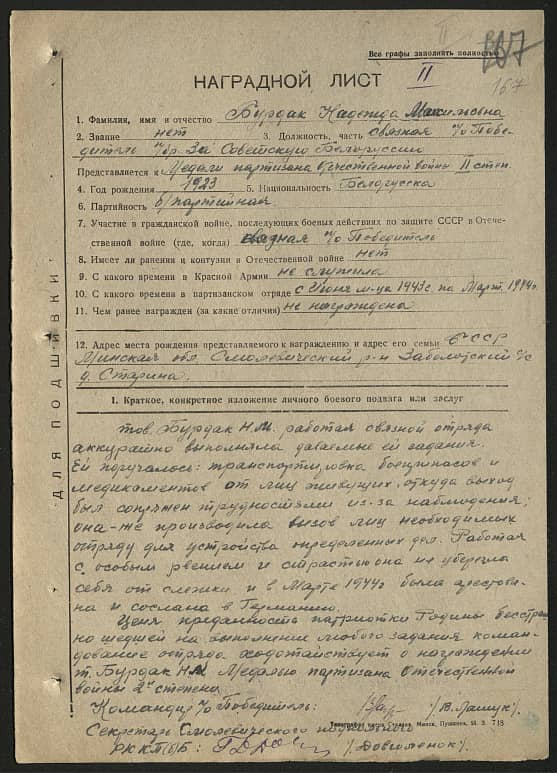 Все графы заполнить полностью
167
НАГРАДНОЙ ЛИСТ
II
1. Фамилия, имя и отчество Бурдак Надежда Максимовна
2. Звание нет 3. Должность, часть связная п/о Побе-
дитель п/бр. За Советскую Белоруссию
Представляется к Медали партизана Отечественной войны II степ.
4. Год рождения 1923 5. Национальность Белорусска
6. Партийность б/партийная
7. Участие в гражданской войне, последующих боевых действиях по защите СССР в Отече-
ственной войне (где, когда) связная п/о Победитель
8. Имеет ли ранения и контузии в Отечественной войне нет
9. С какого времени в Красной Армии не служила
10. С какого времени в партизанском отряде с Июня м-ца 1943 г. по Март 1944 г.
11. Чем ранее награжден (за какие отличия) не награждена
12. Адрес места рождения представляемого к награждению и адрес его семьи БССР
Минская обл. Смолевический р-н Заболотский с/с
д. Старина.
ДЛЯ ПОДШИВКИ
1. Краткое, конкретное изложение личного боевого подвига или заслуг
тов. Бурдак Н.М. работая связной отряда
аккуратно выполняла даваемые ей задания.
Ей поручалось: транспортировка боеприпасов и
медикаментов от лиц живущих, откуда выход
был сопряжен трудностями из-за наблюдения;
она-же производила вызов лиц необходимых
отряду для устройства определенных дел. Работая
с особым рвением и страстью она не уберегла
себя от слежки и в Марте 1944 г. была арестова-
на и сослана в Германию.
Ценя преданность патриотки Родины бесстраш-
но шедшей на выполнение любого задания коман-
дование отряда ходатайствует о награждении
т. Бурдак Н.М. Медалью партизана Отечественной
войны 2й степени.
Командир п/о Победитель: /В. Лащук/.
Типография Минск, Пушкина, З. 718
Секретарь Смолевического
РККП(б)Б: /Довгаленок/.